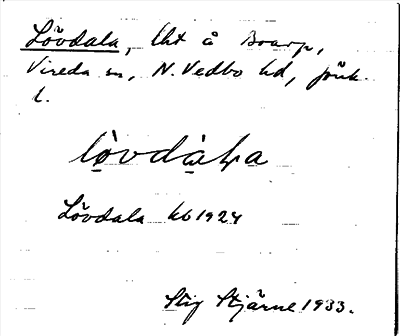 Lövdala, lht å Boarp,
Vireda sn, N. Vedbo hd, Jönk.
l.
lòvdàⱡa
Lövdala kb 1924
Stig Stjärne 1933.